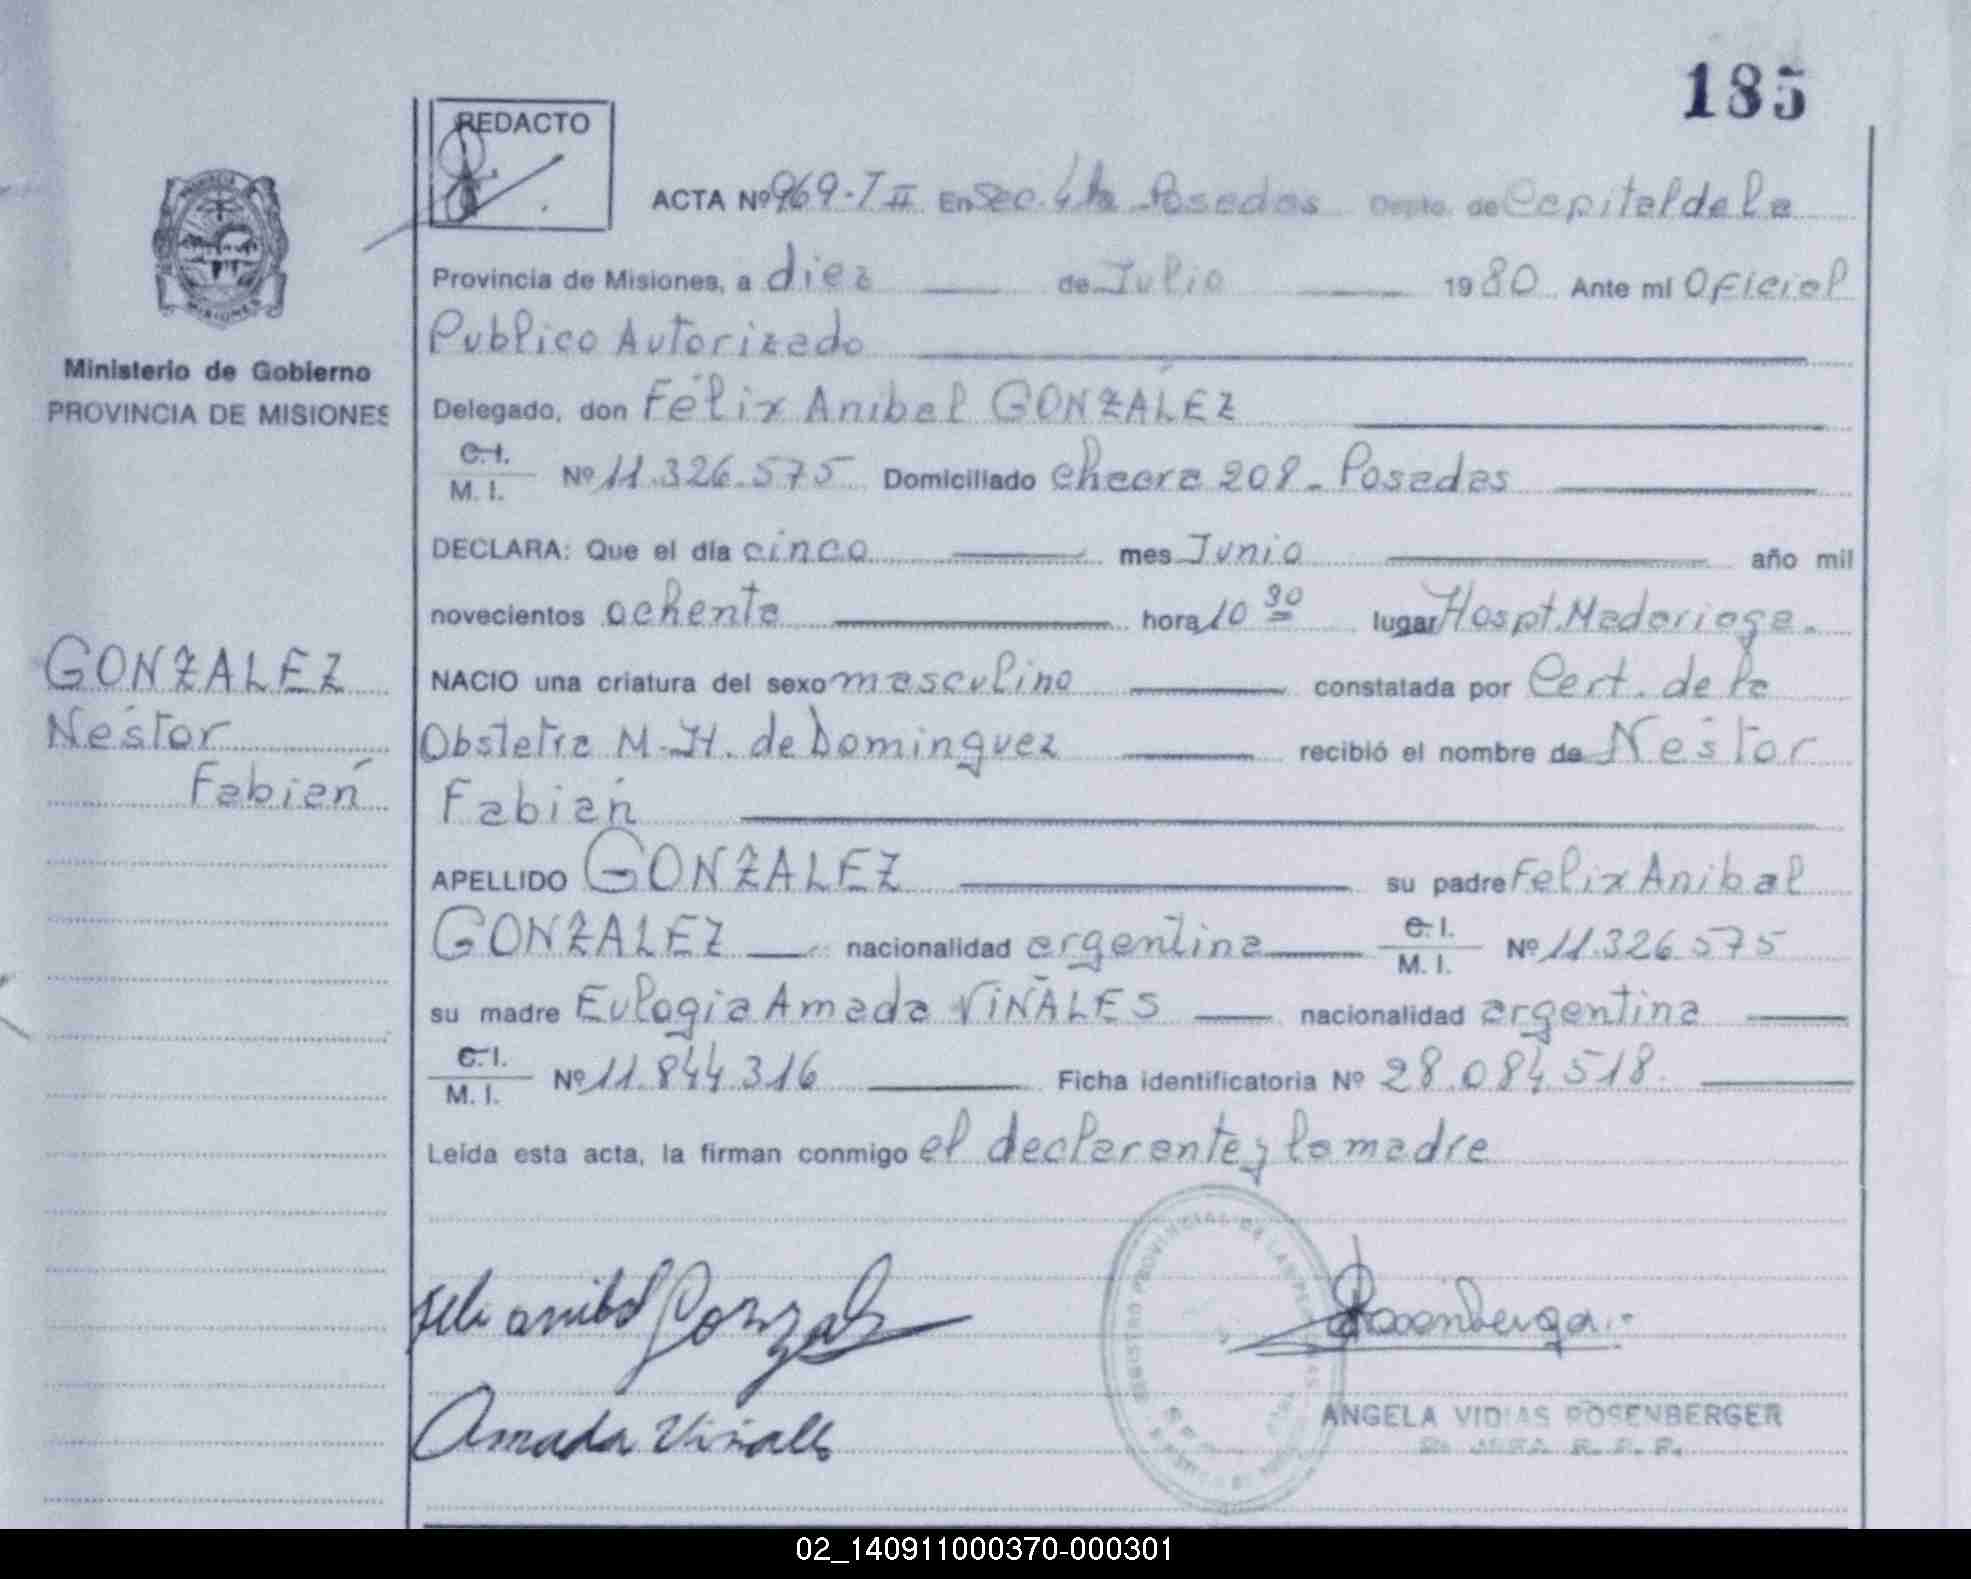 185
REDACTO
ACTA Nº 969-T II En Sec. 4ta Posadas Depto. de Capital de la
Provincia de Misiones, a diez de Julio 1980 Ante mi Oficial
Publico Autorizado
Delegado, don Félix Anibal GONZÁLEZ
C.I. M. I. Nº 11.326.575 Domiciliado chacra 208 - Posadas
DECLARA: Que el día cinco mes Junio año mil
novecientos ochenta hora 10 30 lugar Hospt. Madariaga.
NACIO una criatura del sexo masculino constatada por Cert. de la
Obstetra M. H. de Dominguez recibió el nombre de Nestor
Fabián
APELLIDO GONZALEZ su padre Felix Anibal
GONZALEZ nacionalidad argentina C.I. M. I. Nº 11.326.575
su madre Eulogia Amada VIÑALES nacionalidad argentina
C.I. M. I. Nº 11.844.316 Ficha identificatoria Nº 28.084.518.
Leída esta acta, la firman conmigo el declarante y la madre
Ministerio de Gobierno
PROVINCIA DE MISIONES
GONZALEZ
Néstor
Fabián
Amada Viñales
REGISTRO PROVINCIAL DE LAS PERSONAS
Rosenberger
ANGELA VIDIAS ROSENBERGER
02_140911000370-000301